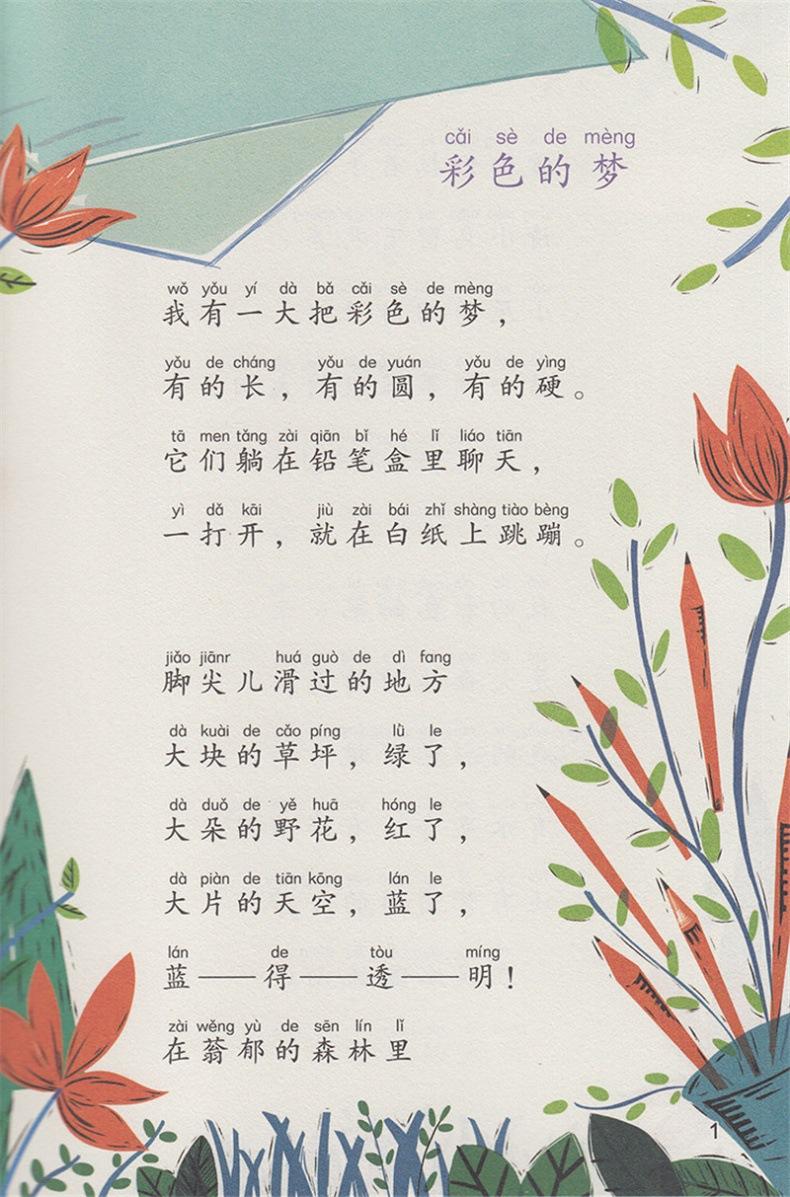 cǎi sè de mèng
彩色的梦
wǒ yǒu yí dà bǎ cǎi sè de mèng
我有一大把彩色的梦，
yǒu de cháng yǒu de yuán yǒu de yìng
有的长，有的圆，有的硬。
tā men tǎng zài qiān bǐ hé lǐ liáo tiān
它们躺在铅笔盒里聊天，
yì dǎ kāi jiù zài bái zhǐ shàng tiào bèng
一打开，就在白纸上跳蹦。
jiǎo jiānr huá guò de dì fang
脚尖儿滑过的地方
dà kuài de cǎo píng lǜ le
大块的草坪，绿了，
dà duǒ de yě huā hóng le
大朵的野花，红了，
dà piàn de tiān kōng lán le
大片的天空，蓝了，
lán de tòu míng
蓝——得——透——明！
zài wěng yù de sēn lín lǐ
在蓊郁的森林里
1